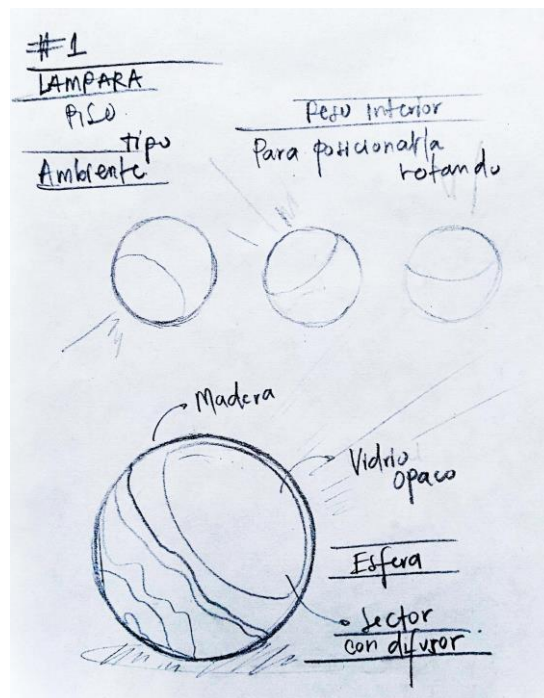 #1
LAMPARA
PISO
tipo
Ambiente
Peso Interior
Para posicionarla
rotando
Madera
Vidrio
opaco
Esfera
Sector
con difusor.